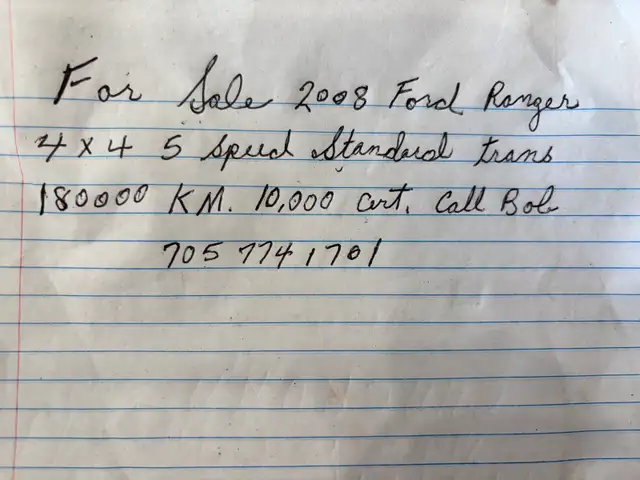 For Sale 2008 Ford Ranger
4 x 4 5 speed Standard trans
180000 KM. 10,000 cert. Call Bob
705 774 1701